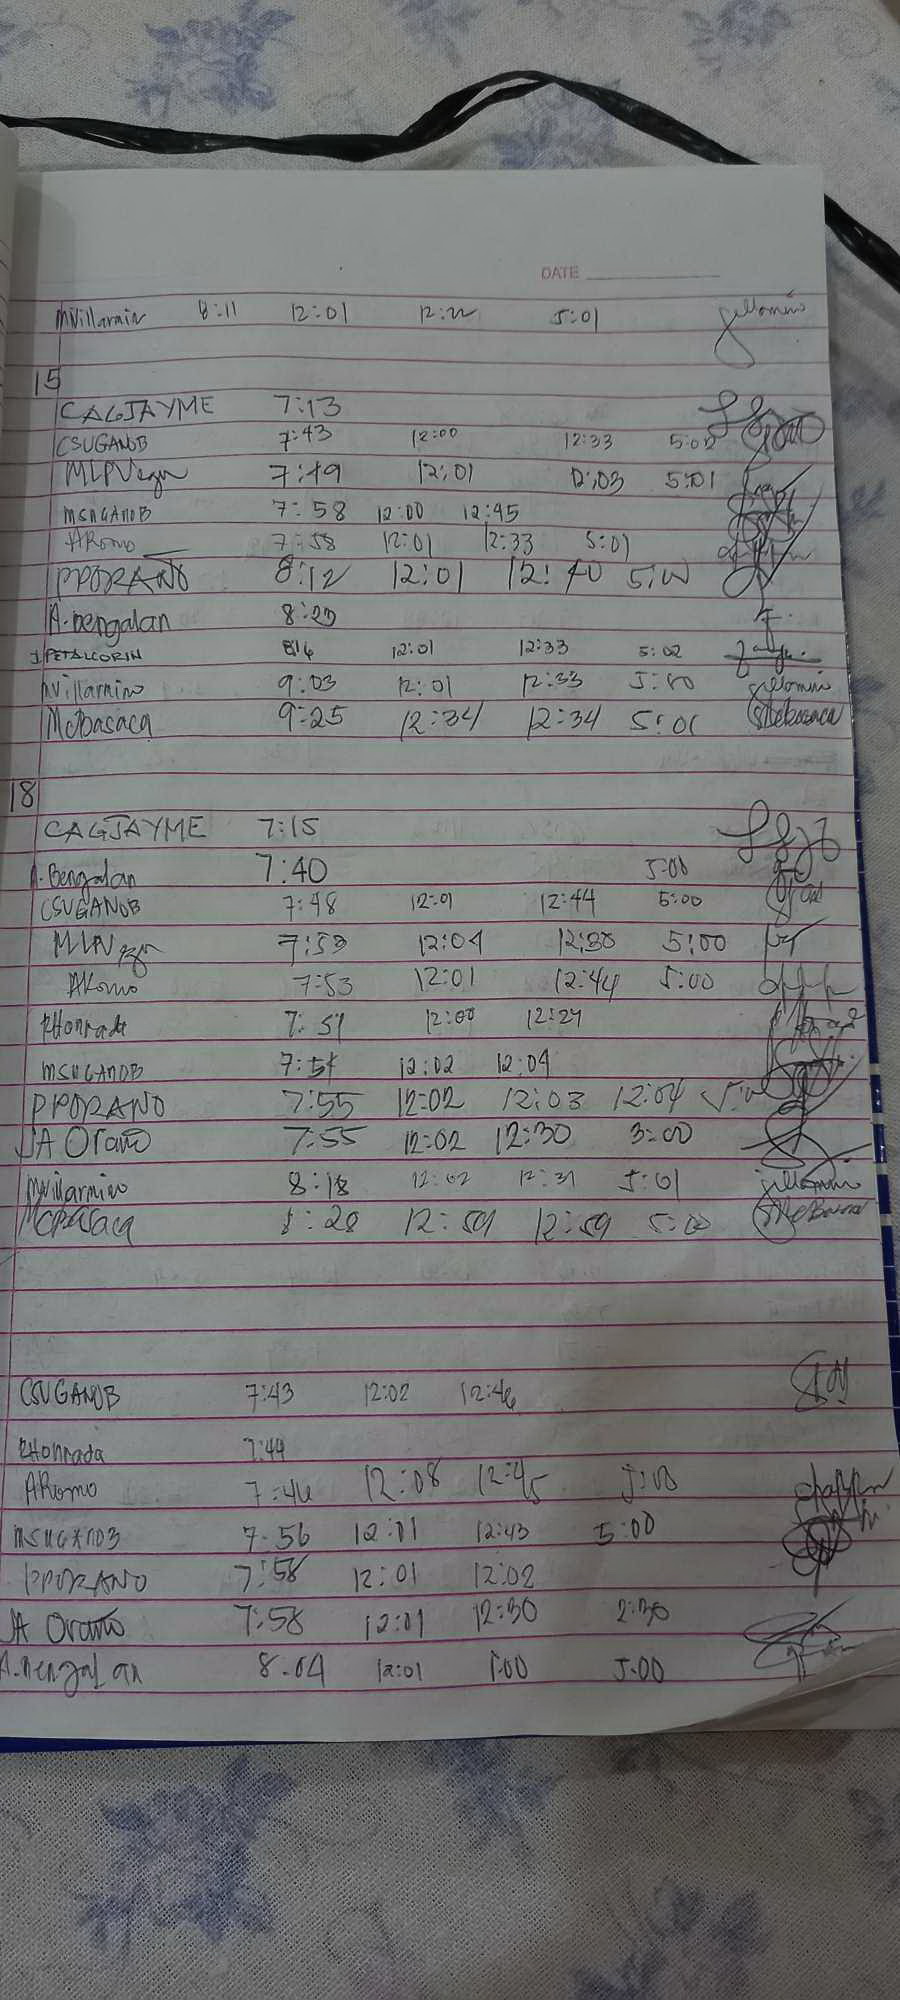 DATE
MVillarmin 8:11 12:01 12:22 5:01
15
CAGJAYME 7:13
CSUGANOB 7:43 12:00 12:33 5:02
MLPVega 7:49 12:01 12:03 5:01
MSUGANOB 7:58 12:00 12:45
ARomo 7:58 12:01 12:33 5:01
PPORAÑO 8:12 12:01 12:40 5:00
A.Bengalan 8:23
JPETALCORIN 12:01 12:33 5:02
MVillarmino 9:03 12:01 12:33 5:00
McBasaca 9:25 12:34 12:34 5:01
18
CAGJAYME 7:15
A.Bengalan 7:40 5:00
CSUGANOB 7:48 12:01 12:44 5:00
MLPVega 7:53 12:04 12:30 5:00
ARomo 7:53 12:01 12:44 5:00
RHonrada 7:51 12:00 12:27
MSUGANOB 7:54 12:02 12:04
PPORAÑO 7:55 12:02 12:03 12:04
JA Oraño 7:55 12:02 12:30 3:00
MVillarmino 8:18 12:02 12:31 5:01
MCBasaca 8:28 12:59 12:59 5:00
CSUGANOB 7:43 12:02 12:46
RHonrada 7:44
ARomo 7:46 12:08 12:45 5:00
MSUGANOB 7:56 12:01 12:43 5:00
PPORAÑO 7:58 12:01 12:02
JA Oraño 7:58 12:01 12:30 2:30
A.Bengalan 8:04 12:01 1:00 5:00